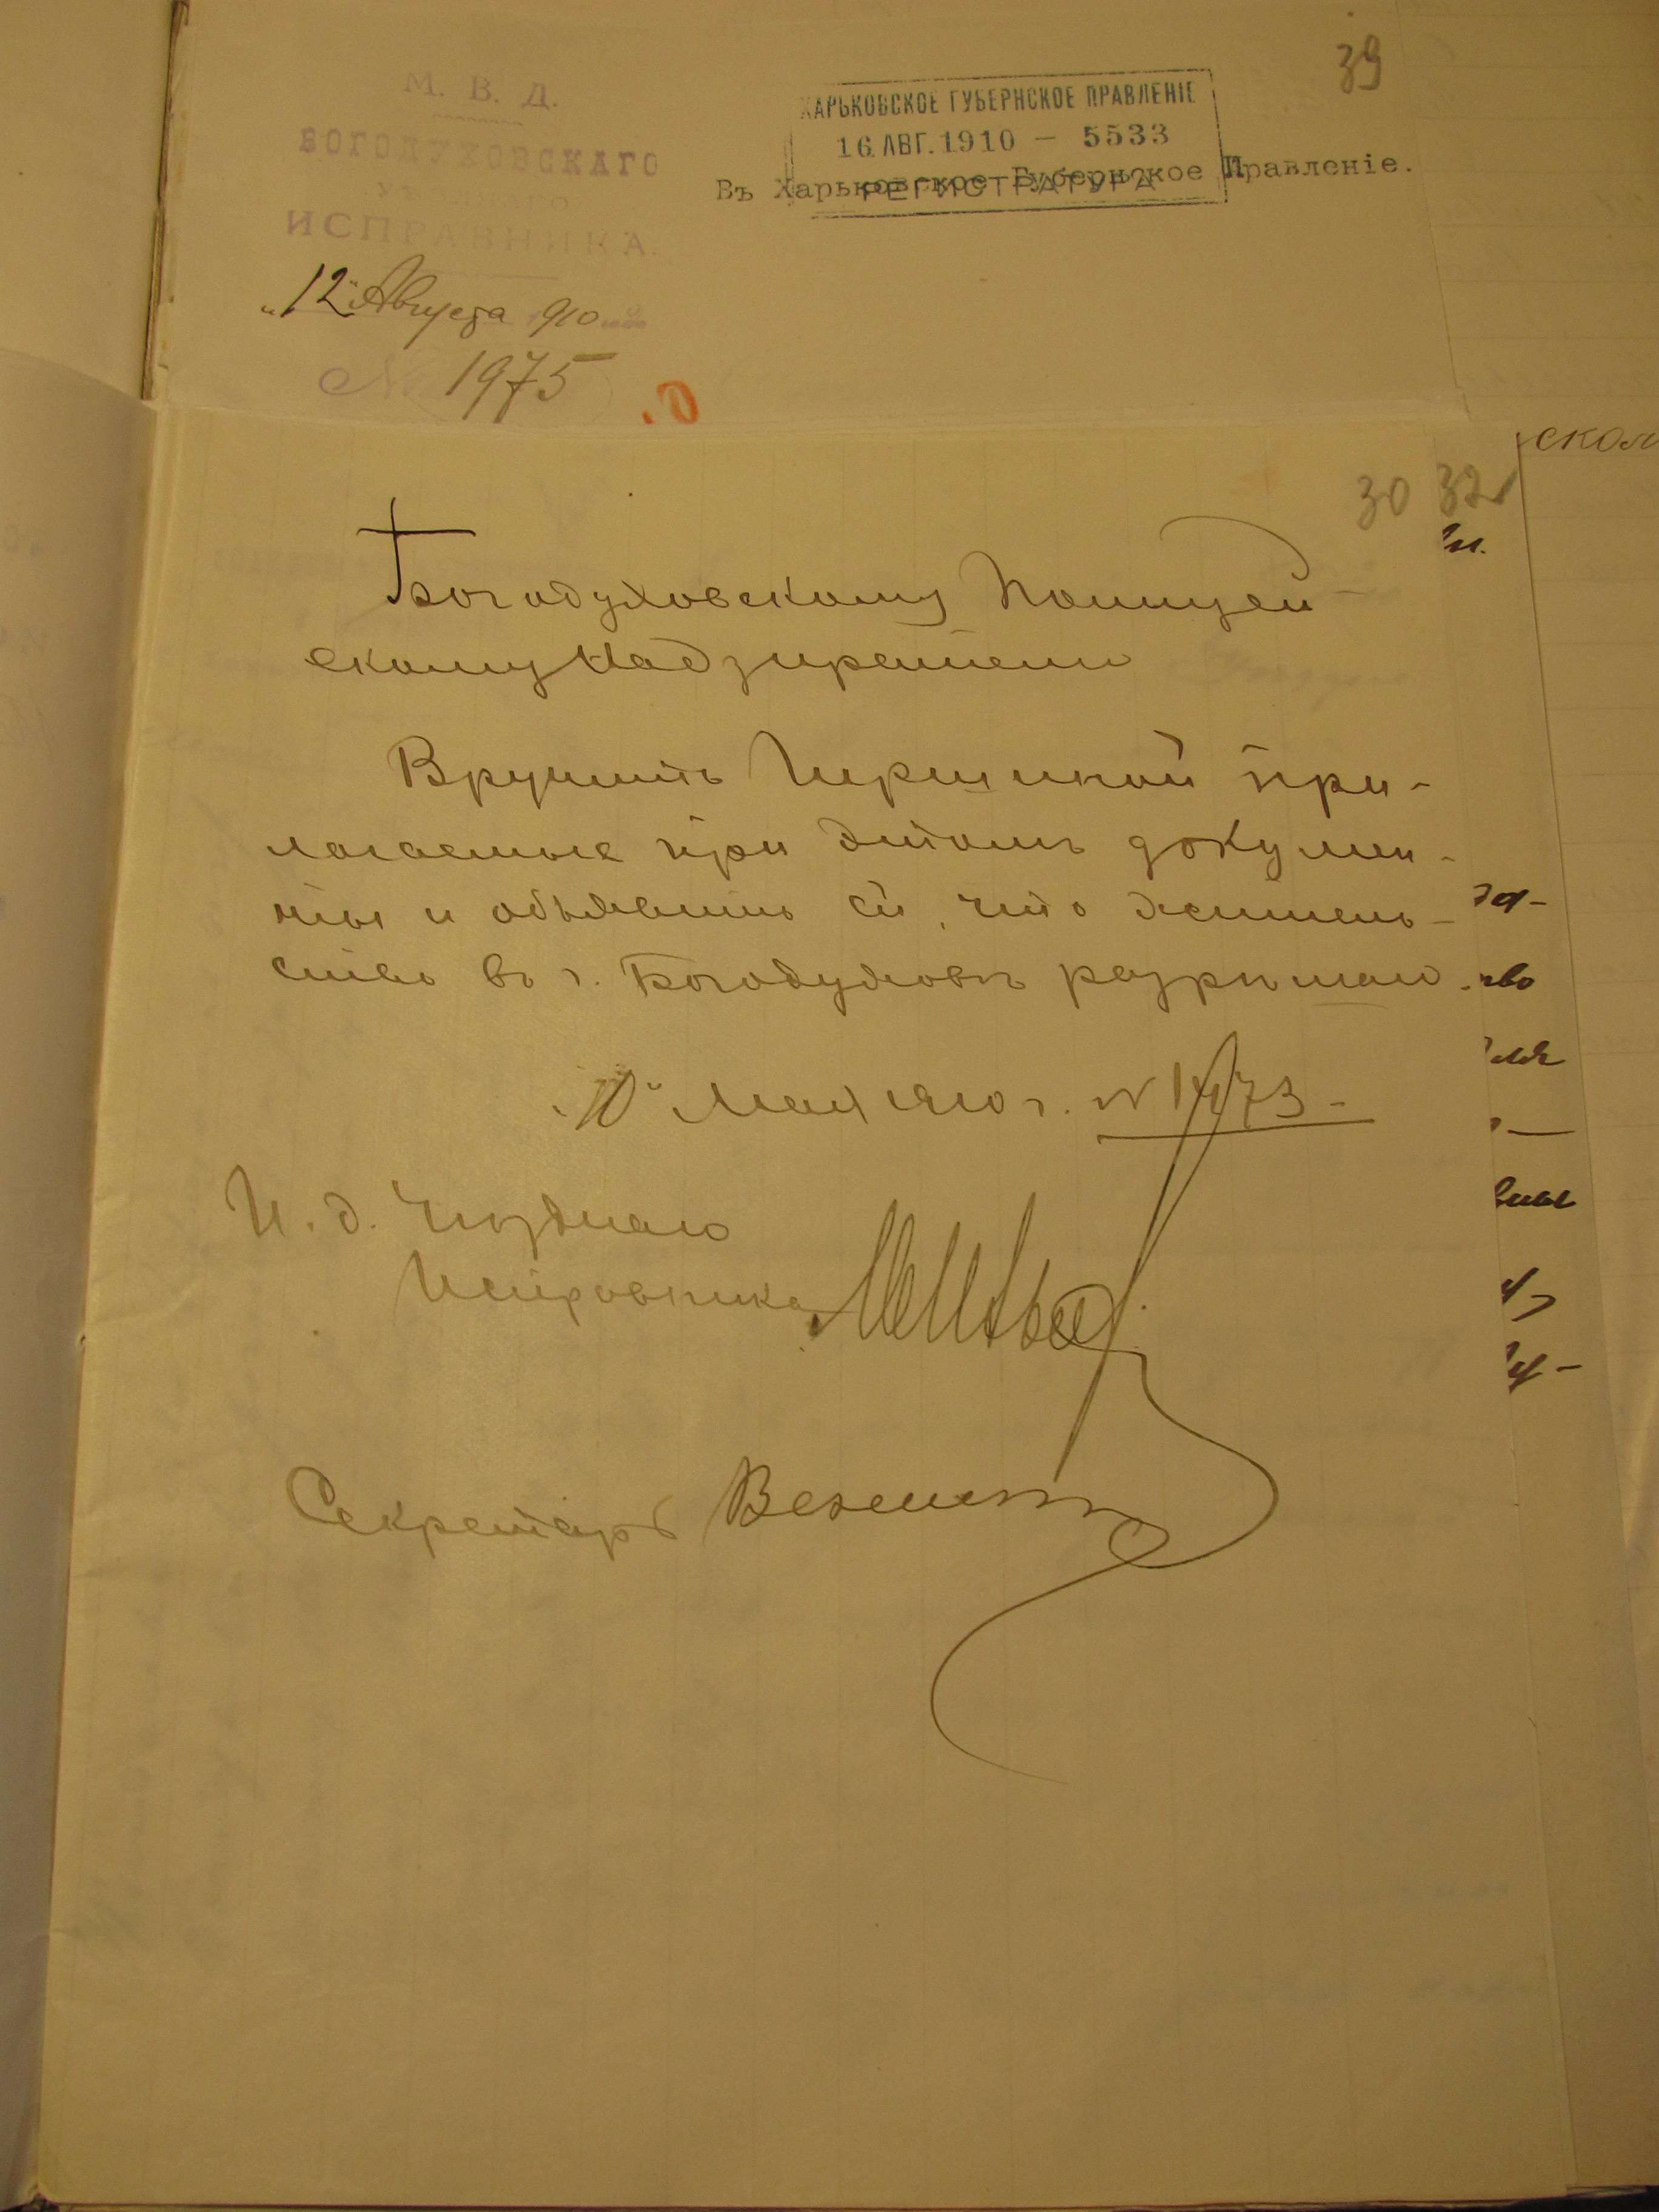 39
М. В. Д.
БОГОДУХОВСКАГО
ИСПРАВНИКА.
ХАРЬКОВСКОЕ ГУБЕРНСКОЕ ПРАВЛЕНІЕ
16 АВГ. 1910 — 5533
РЕГИСТРАТУРА
Въ Харьковское Губернское Правленіе.
„12" Августа 1910
№ 1975
скол
30 32
Богодуховскому Полицей-
скому Надзирателю
Вручить при-
лагаемые при этомъ докумен-
ты и объявить ей, что житель-
ство въ г. Богодуховѣ разрѣшаю.
„10" Мая 1910 г. N 1473-
И. д. Уѣзднаго
Исправника
Секретарь